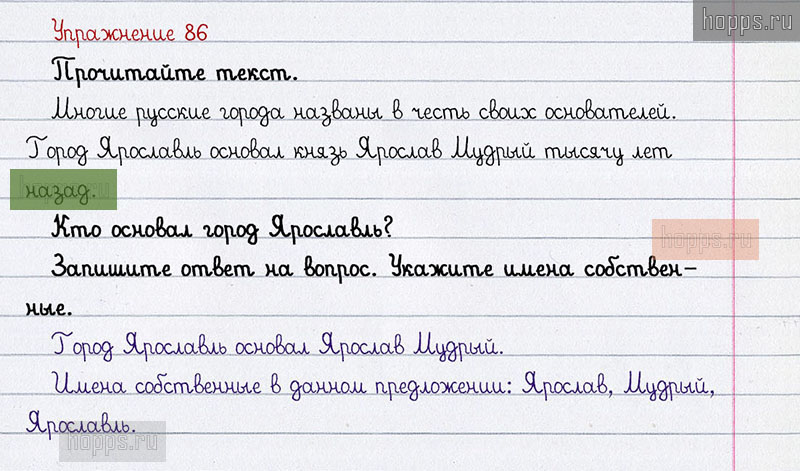 hopps.ru
Упражнение 86
Прочитайте текст.
Многие русские города названы в честь своих основателей.
Город Ярославль основал князь Ярослав Мудрый тысячу лет
назад.
Кто основал город Ярославль?
hopps.ru
Запишите ответ на вопрос. Укажите имена собствен-
ные.
Город Ярославль основал Ярослав Мудрый.
Имена собственные в данном предложении: Ярослав, Мудрый,
Ярославль.
hopps.ru